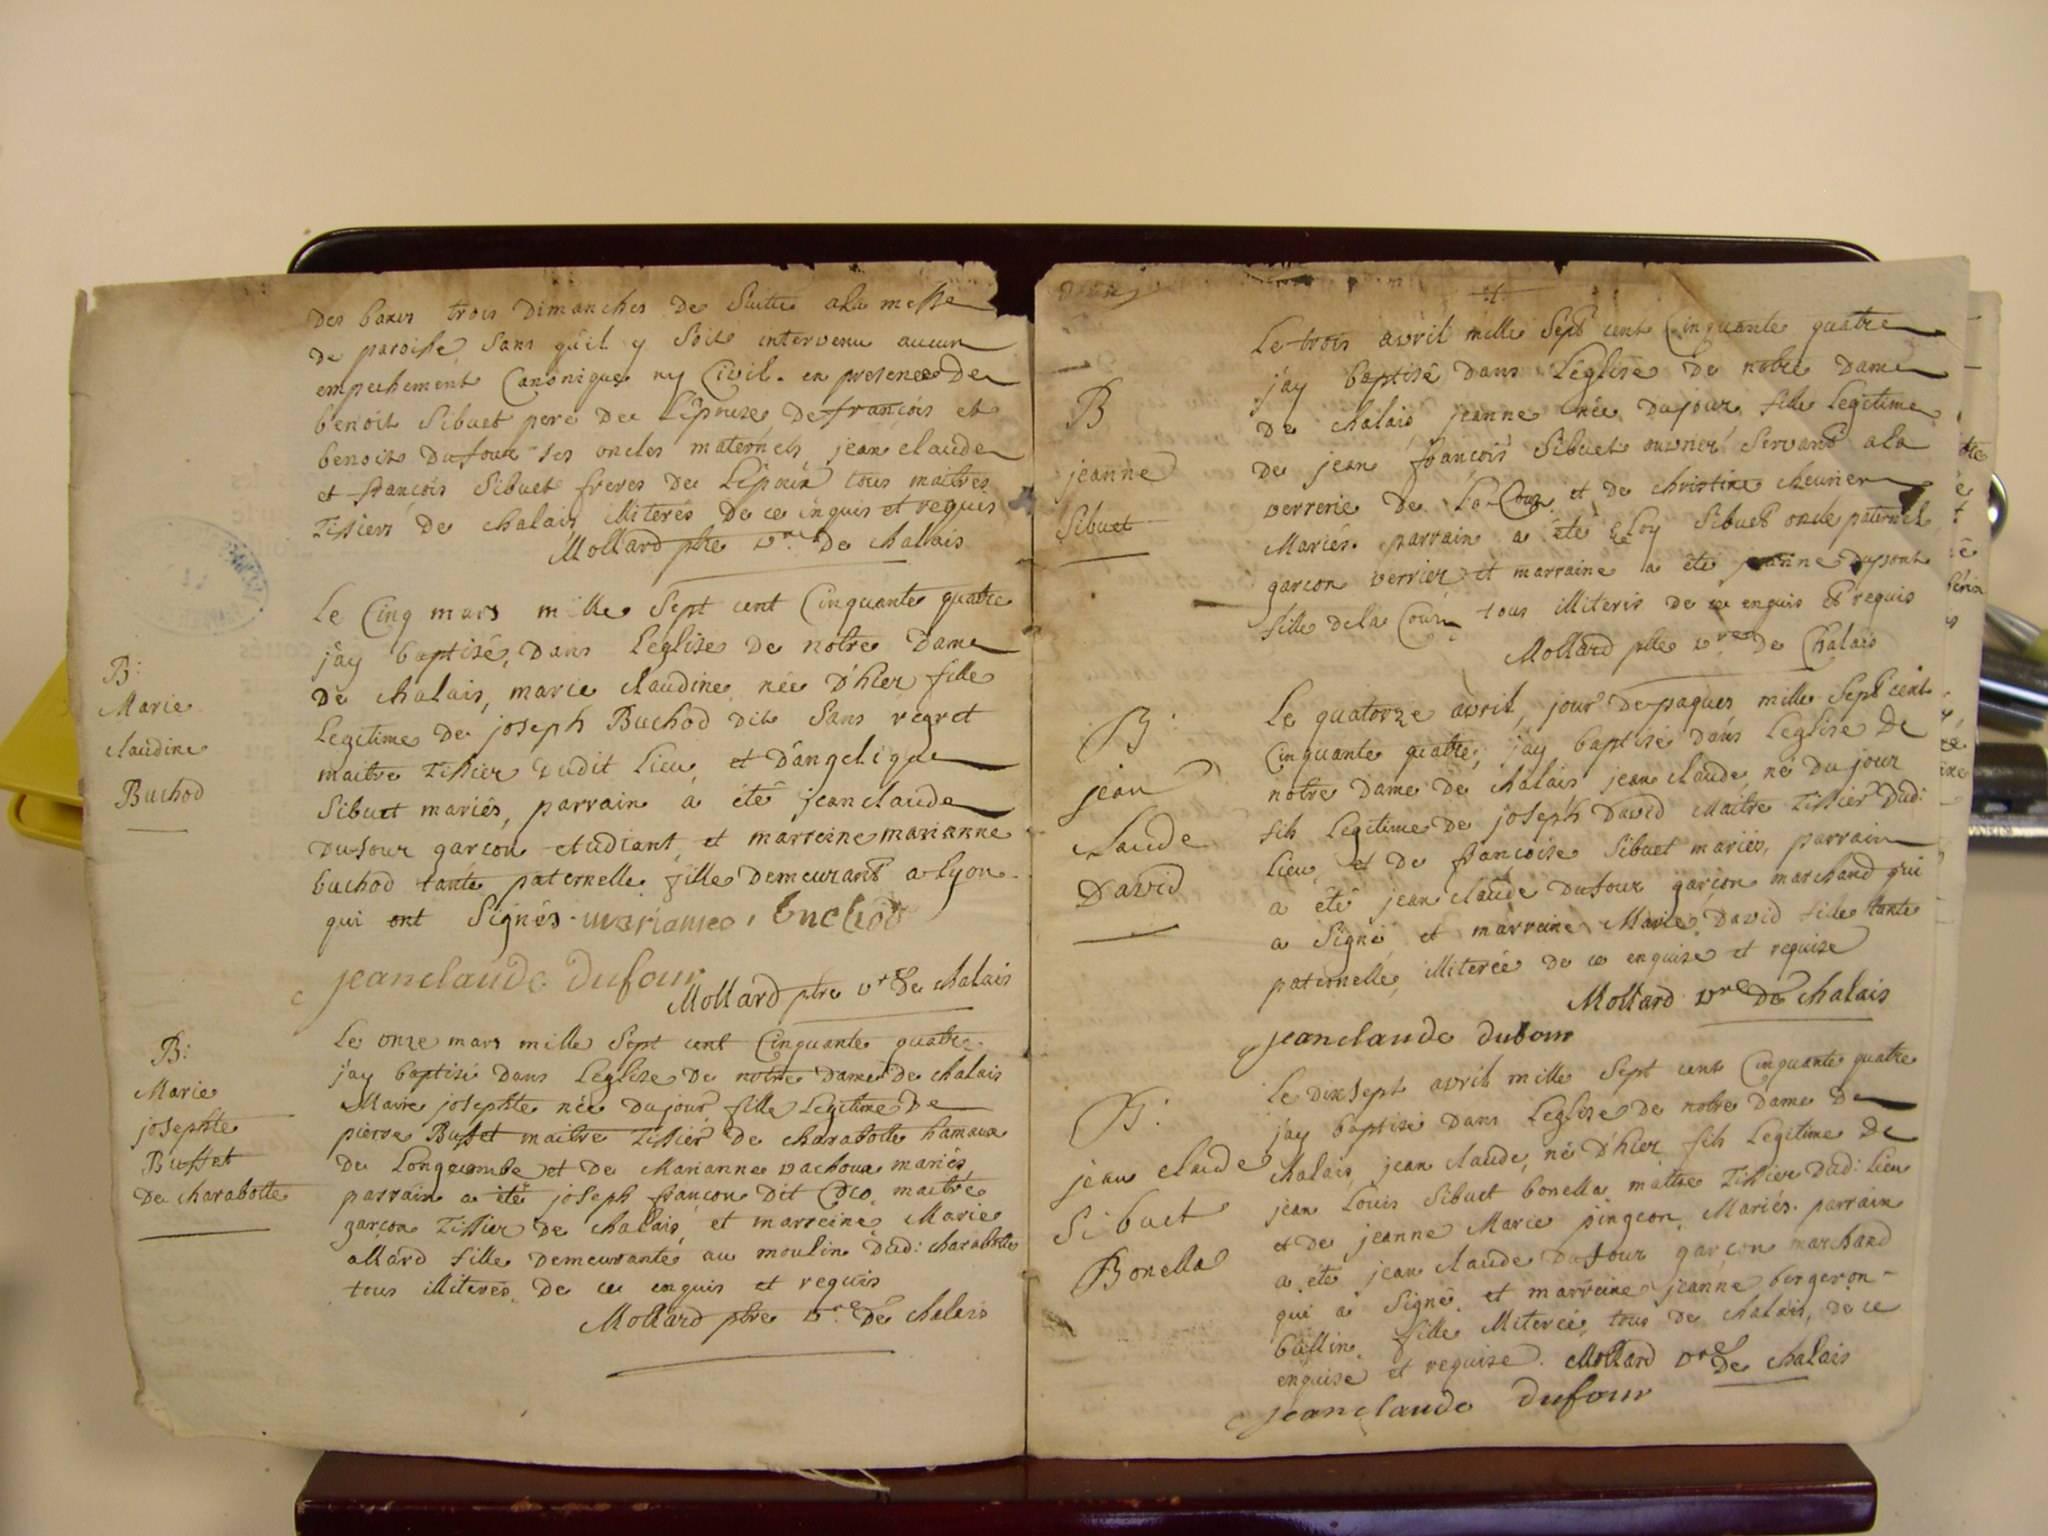 des bancs trois dimanches de suitte a la messe
de paroisse, sans qu'il y soit intervenu aucun
empechement Canonique ny Civil. en presence de
benoit Sibuet pere de L'epouze, de françois et
benoit Dufour ses oncles maternels, jean claude
et françois Sibuet freres de L'epoux tous maitres
Tissiers de chalais, illiterés de ce enquis et requis
Mollard ptre vre de challais
B:
Marie
claudine
Buchod
Le Cinq mars mille Sept cent Cinquante quatre
j'ay baptisé, dans Leglize de notre Dame
de chalais, marie claudine née d'hier fille
Legitime de joseph Buchod dit Sans regret
maitre Tissier dudit Lieu, et d'angelique
Sibuet mariés, parrain a été jean claude
Dufour garçon etudiant, et marreine marianne
buchod tante paternelle, fille demeurant a Lyon
qui ont Signés. marianne buchod
jeanclaude dufour
Mollard ptre vre de chalais
B:
Marie
josephte
Buffet
De charabotte
Le onze mars mille Sept cent Cinquante quatre
j'ay baptisé dans Leglize de notre Dame de chalais
Marie josephte née du jour, fille Legitime de
pierre Buffet maitre Tissier de charabotte hamaux
de Longecombe et de Marianne vachoux mariés,
parrain a été joseph françon dit maitre
garçon Tissier de chalais, et marreine Marie
allard fille demeurante au moulin dud: charabotte
tous illiterés de ce enquis et requis
Mollard ptre vre de chalais
B
jeanne
Sibuet
Le trois avril mille Sept cent Cinquante quatre
j'ay baptisé dans Leglize de notre Dame
de chalais jeanne née du jour, fille Legitime
de jean françois Sibuet ouvrier Servant a la
verrerie de La Coux, et de christine chevrier
Mariés. parrain a été eloy Sibuet oncle paternel
garçon verrier et marraine a été jeanne dupont
fille de la Coux, tous illiterés de ce enquis et requis
Mollard ptre vre de Chalais
B:
jean
Claude
David
Le quatorze avril, jour de paques mille Sept cent
Cinquante quatre, j'ay baptisé dans Leglize de
notre Dame de chalais jean claude né du jour
fils Legitime de joseph David Maitre Tissier dud:
Lieu, et de françoise Sibuet mariés, parrain
a été jean claude Dufour garçon marchand qui
a Signé, et marreine Marie David fille tante
paternelle, illiterée de ce enquise et requise
Mollard vre de chalais
jeanclaude dufour
B:
jean claude
Sibuet
Bonella
Le dixSept avril mille Sept cent Cinquante quatre
j'ay baptisé dans Leglize de notre Dame de
chalais, jean claude, né d'hier fils Legitime de
jean Louis Sibuet bonella, maitre Tissier dud: Lieu
et de jeanne Marie pingeon, Mariés. parrain
a été jean claude Dufour garçon marchand
qui a Signé, et marreine jeanne bergeron-
bullin, fille illiterée, tous de chalais, de ce
enquise et requise. Mollard vre de chalais
jeanclaude dufour